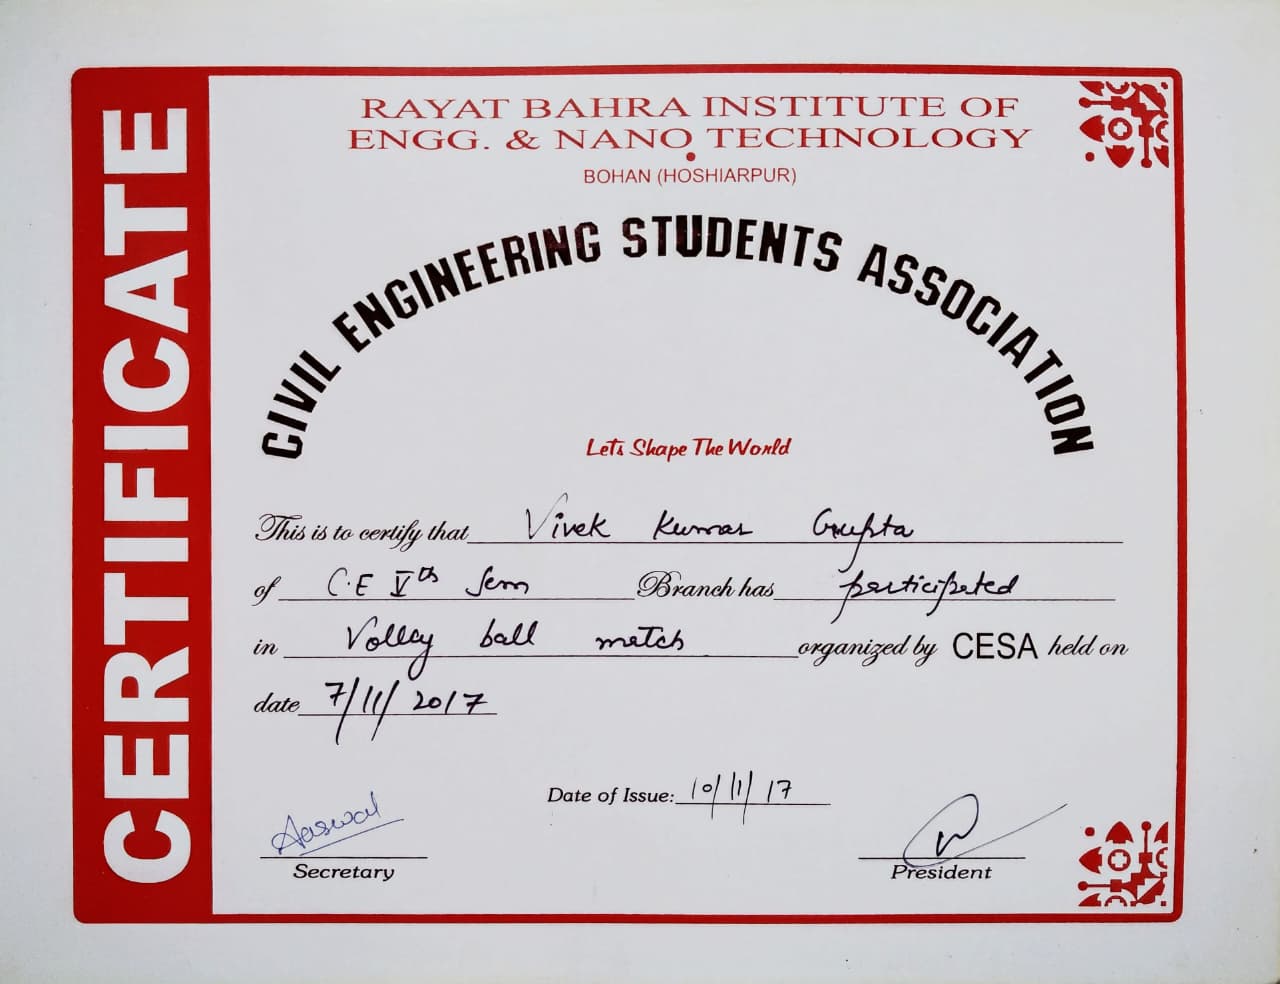 CERTIFICATE
RAYAT BAHRA INSTITUTE OF
ENGG. & NANO TECHNOLOGY
BOHAN (HOSHIARPUR)
CIVIL ENGINEERING STUDENTS ASSOCIATION
Lets Shape The World
This is to certify that Vivek Kumar Gupta
of C.E Vth Sem Branch has participated
in Volley ball match organized by CESA held on
date 7/11/2017
Date of Issue: 10/11/17
Secretary
President